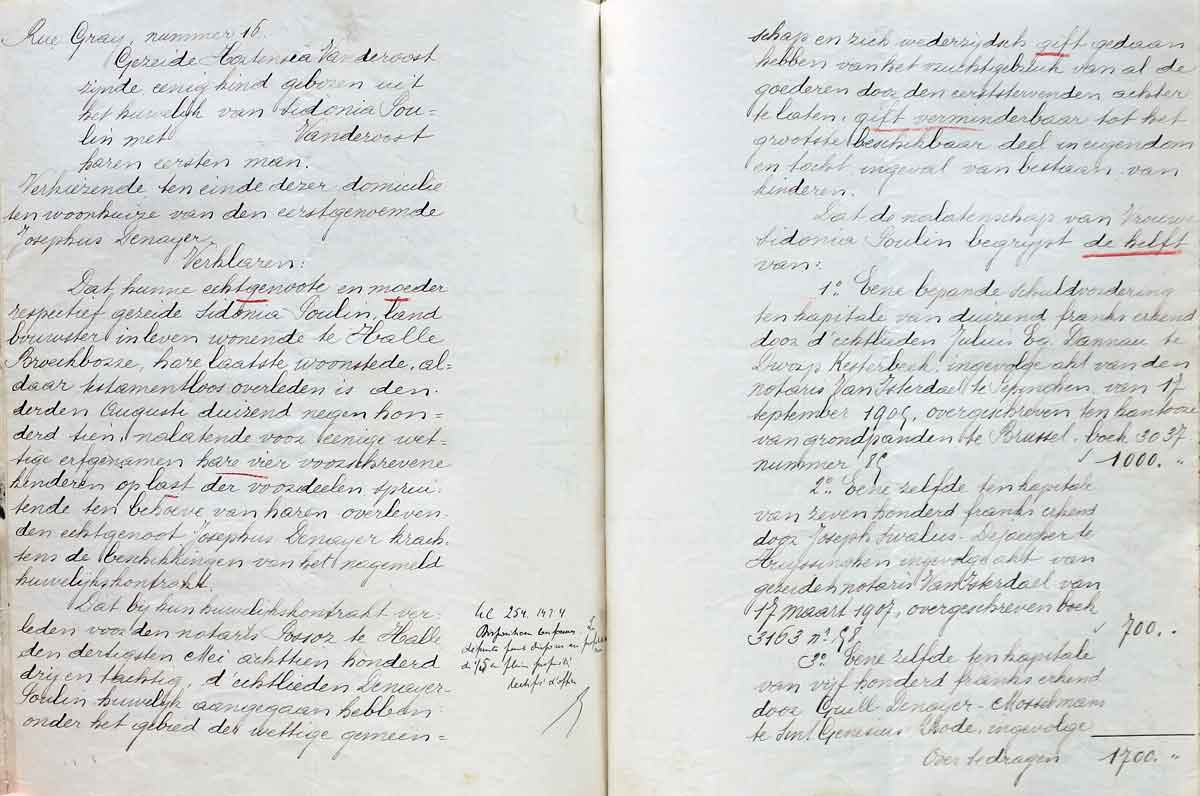 Rue Gray, nummer 16.
Gezeide Hortensia Vanderoost
zijnde eenig kind geboren uit
het huwelijk van Sidonia Pou=
lin met Vanderoost
haren eersten man.
Verkiezende ten einde dezer domicilie
ten woonhuize van den eerstgenoemde
Josephus Denayer.
Verklaren:
Dat hunne echtgenoote en moeder
respectief gezeide Sidonia Poulin, land
bouwster in leven wonende te Halle
Broekbosse, hare laatste woonstede, al=
daar testamentloos overleden is den
derden Augusti duizend negen hon=
derd tien, nalatende voor eenige wet=
tige erfgenamen hare vier voorschrevene
kinderen op last der voordeelen sprui=
tende ten behoeve van haren overleven=
den echtgenoot Josephus Denayer krach=
tens de beschikkingen van het nagemeld
huwelijkskontrakt.
Dat bij hun huwelijkskontrakt ver=
leden voor den notaris Possoz te Halle
den dertigsten Mei achttien honderd
drij en tachtig, d'echtlieden Denayer-
Poulin huwelijk aangegaan hebben
onder het gebied der wettige gemeen=
254. 1474
Disposition
de en plein propriété
rectifié d'office
schap en zich wederzijdsch gift gedaan
hebben van het vruchtgebruik van al de
goederen door den eerststervenden achter
te laten, gift verminderbaar tot het
grootste beschikbaar deel in eugendom
en tocht ingeval van bestaan van
kinderen.
Dat de nalatenschap van Vrouwe
Sidonia Poulin begrypt de helft
van:
1° Eene bepande schuldvordering
ten kapitale van duizend franks erkend
door d'echtlieden Julius Eg. Dannau te
Dworp Kesterbeek ingevolge akt van den
notaris Van Isterdael te Pepinghen, van 17
september 1905, overgeschreven ten kantoore
van grondpanden te Brussel. boek 3037
nummer 85 1000. "
2° Eene zelfde ten kapitale
van zeven honderd franks erkend
door Joseph Swalus-Dejoncker te
Huyssinghen ingevolge akt van
gezeiden notaris Van Isterdael van
17 maart 1907, overgeschreven boek
3163 n° 58 700. "
3° Eene zelfde ten kapitale
van vijf honderd franks erkend
door Guill Denayer-Mosselmans
te Sint Genesius Rode, ingevolge
Over te dragen 1700. "